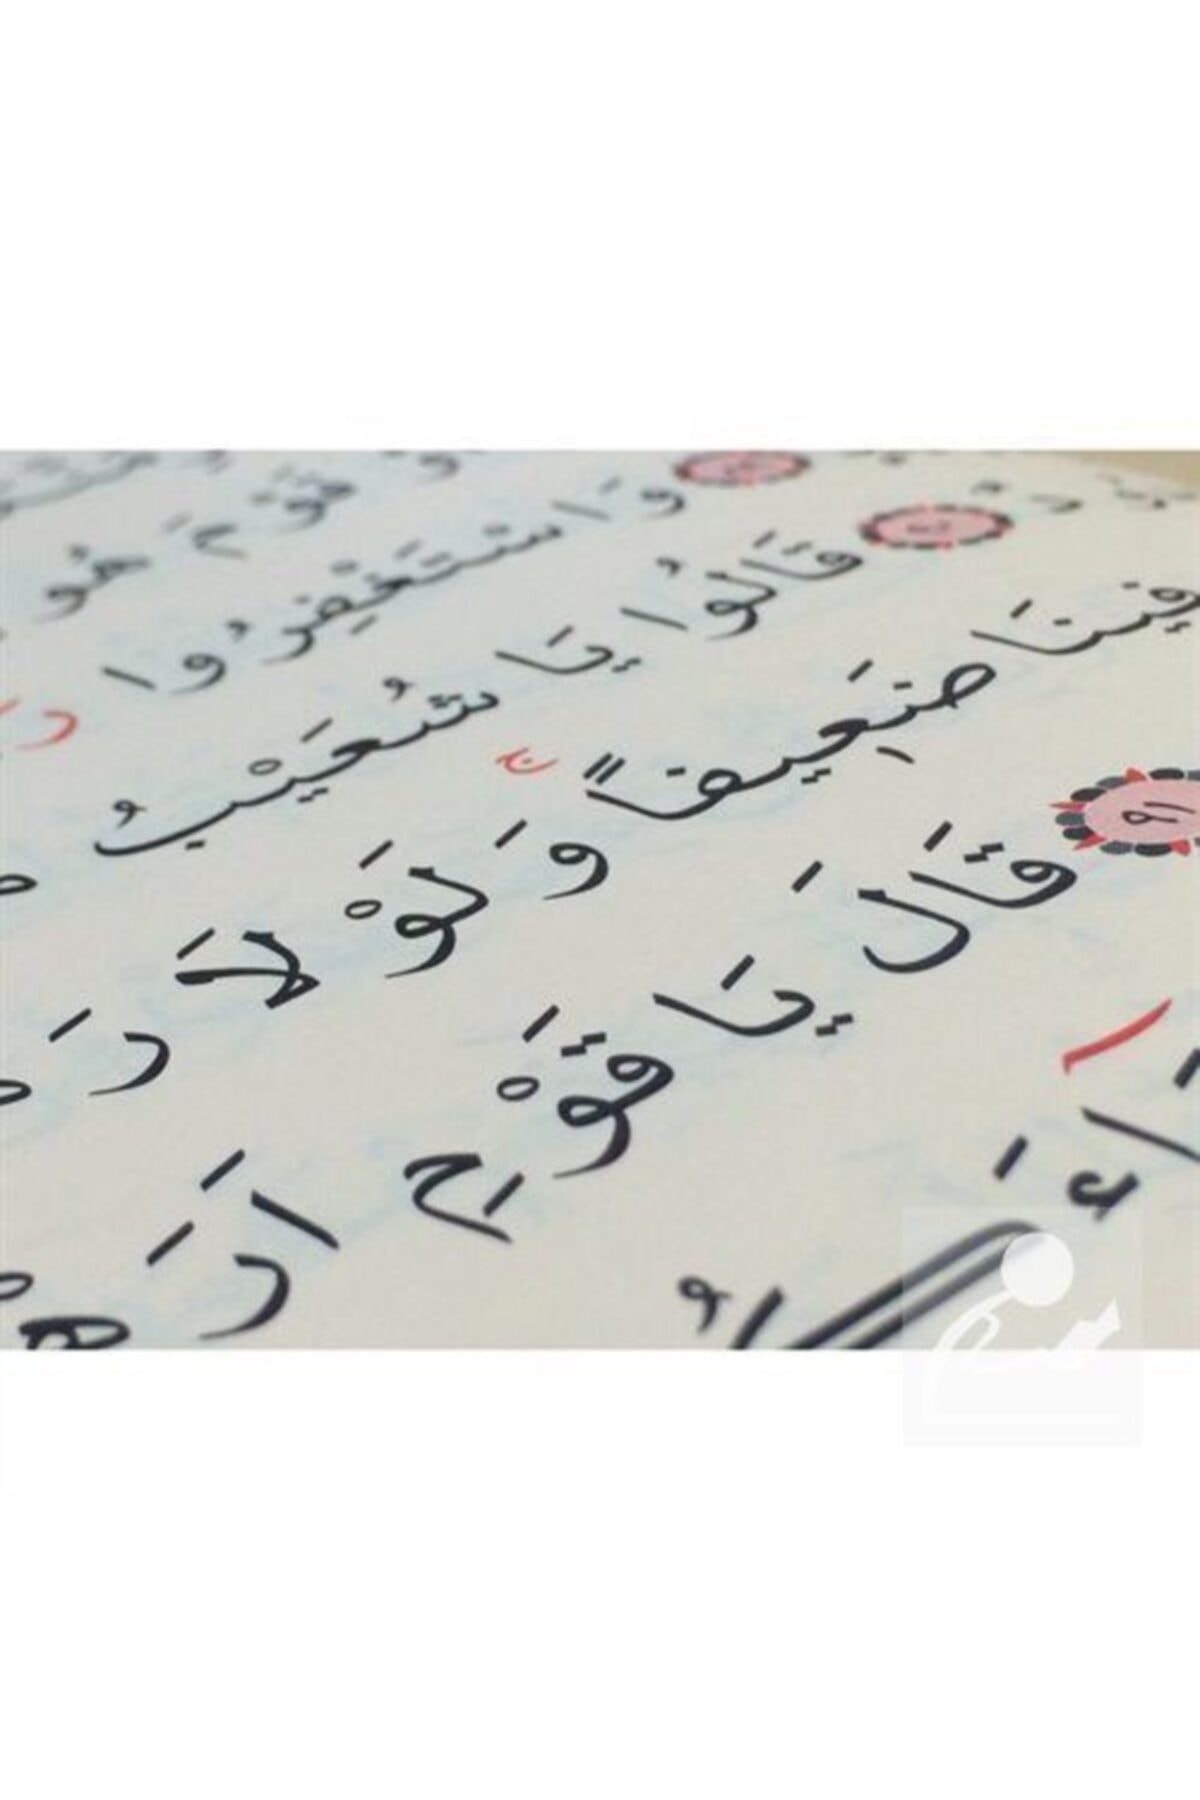 قَوْمَ هُو
وَاسْتَغْفِرُوا رَ
٩٠ قَالُوا يَا شُعَيْبُ
فِينَا ضَعِيفًا ج وَلَوْلَا رَ
٩١ قَالَ يَا قَوْمِ اَرَهْ